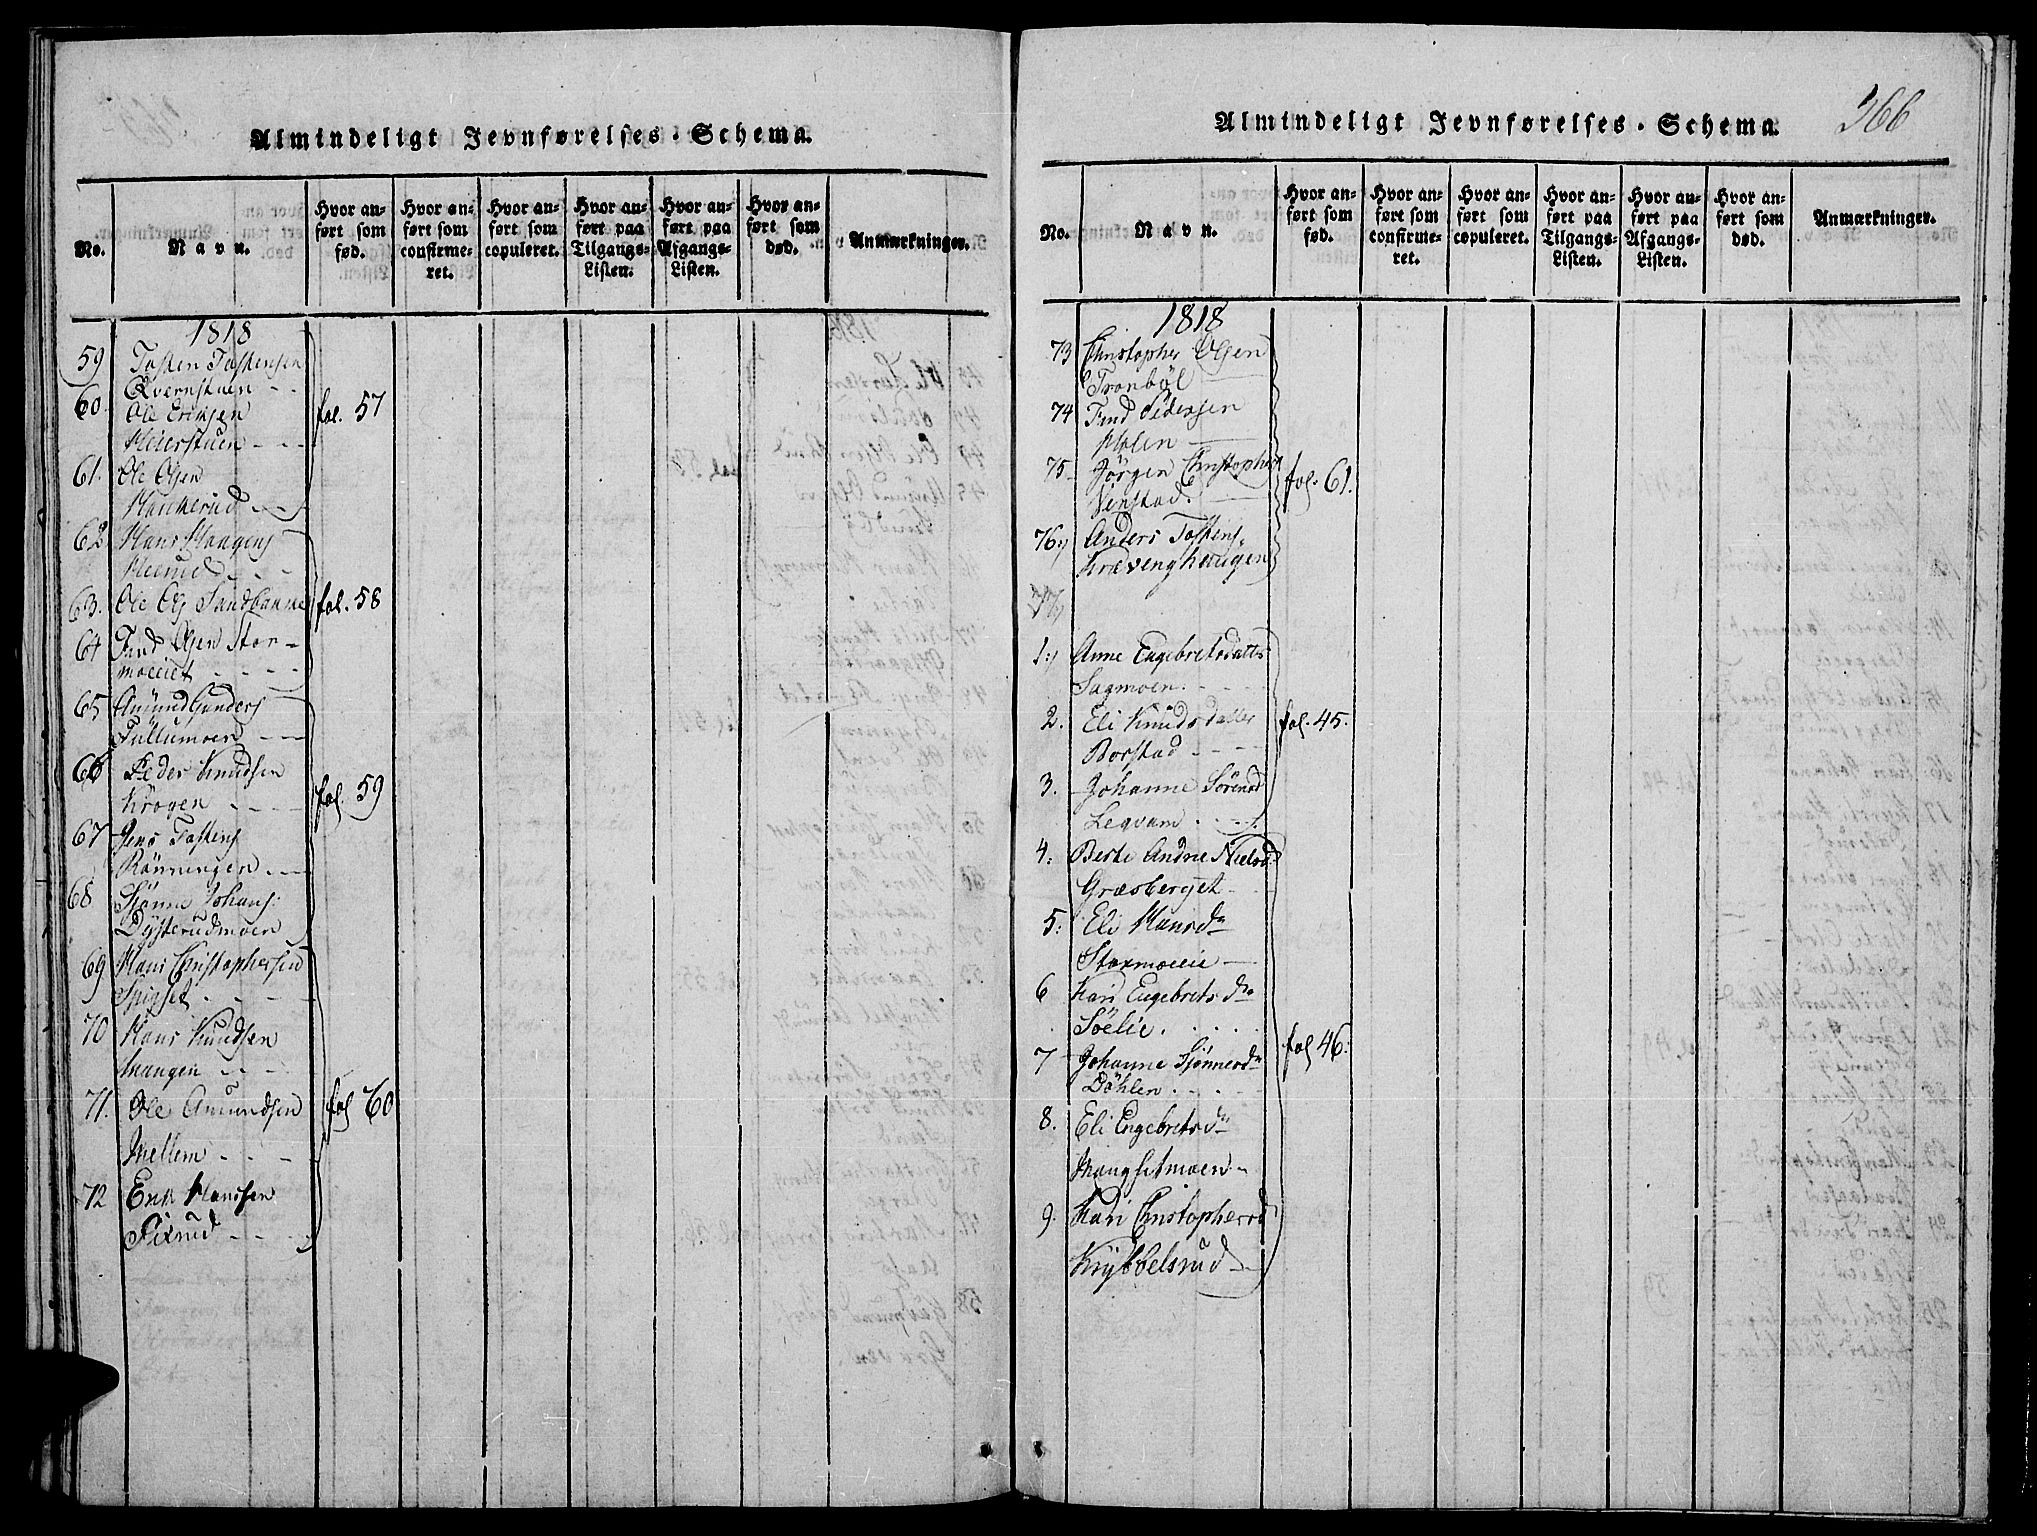 Almindeligt Jevnførelses-Schema.
No.
Navn.
Hvor anført som fød.
Hvor anført som confirmeret.
Hvor anført som copuleret.
Hvor anført paa Tilgangs-Listen.
Hvor anført paa Afgangs-Listen.
Hvor anført som død.
Anmærkninger.
1818
59 Tosten Tostensen
Qvernstuen - -
60. Ole Eriksen fol. 57
Meierstuen - - -
61. Ole Olsen
Hankerud - -
62 Hans Haagens
63. Ole Ols Sandbakke fol. 58
64 Olsen Stor-
moeiet - - - -
65 Amund Gunders
Tullumoen - -
66 Peder Knudsen
Krogen - - - fol. 59
67 Jens Tostens
Rönningen. - -
68 Sjönne Johans:
Dÿsterudmoen
69 Hans Christophersen
Spigset. - - -
70 Hans Knudsen
Mangen - - -
71. Ole Amundsen fol 60
Mellem - - -
72 Erik Hansen
Sixrud - - - -
366
Almindeligt Jevnførelses-Schema.
No.
Navn.
Hvor anført som fød.
Hvor anført som confirmeret.
Hvor anført som copuleret.
Hvor anført paa Tilgangs-Listen.
Hvor anført paa Afgangs-Listen.
Hvor anført som død.
Anmærkninger.
1818
73 Christopher Olsen
Tronböl
74 Pedersen
Molen
75. Jörgen Christophers fol. 61.
Venstad.
76) Anders Tostens.
Kræveng haugen
1.) Anne Engebretsdatter
Sagmoen. - - -
2. Eli Knudsdatter fol. 45.
Borstad - - - -
3. Johanne Sörensd
Leqvam. - - -
4: Berte Andrie Nielsd
Græsberget -
5: Eli Hansdr
Stormoeie
6 Kari Engebretsdr
Söelie. . . . .
7 Johanne Sjönnesdr fol 46:
Döhlen. - - -
8. Eli Engebretsdr
Haugsetmoen -
9. Kari Christophersd
Krÿbbelsrud -